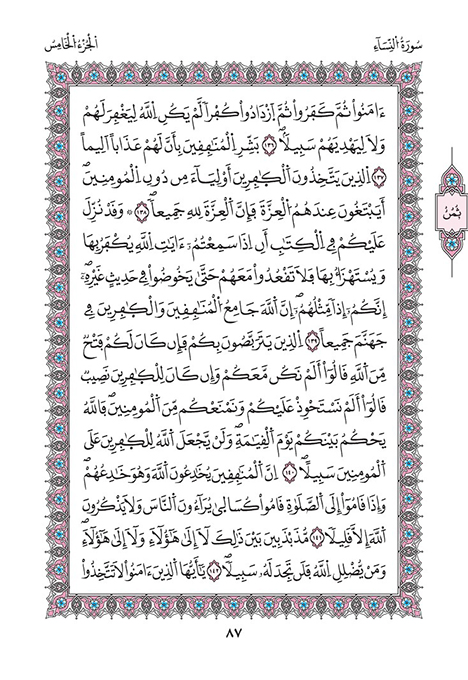 سُورَةُ اُ۬لنِّسَآءِ
اَ۬لْجُزْءُ اُ۬لْخَامِسُ
ءَامَنُواْ ثُمَّ كَفَرُواْ ثُمَّ اَ۪زْدَادُواْ كُفْراٗ لَّمْ يَكُنِ اِ۬للَّهُ لِيَغْفِرَ لَهُمْ
وَلَا لِيَهْدِيَهُمْ سَبِيلاٗۖ ١٣٦ بَشِّرِ اِ۬لْمُنَٰفِقِينَ بِأَنَّ لَهُمْ عَذَاباً اَلِيماً
١٣٧ اِ۬لذِينَ يَتَّخِذُونَ اَ۬لْكٰ۪فِرِينَ أَوْلِيَآءَ مِن دُونِ اِ۬لْمُومِنِينَۖ
أَيَبْتَغُونَ عِندَهُمُ اُ۬لْعِزَّةَ فَإِنَّ اَ۬لْعِزَّةَ لِلهِ جَمِيعاٗۖ ١٣٨ ۞ وَقَدْ نُزِّلَ
عَلَيْكُمْ فِے اِ۬لْكِتَٰبِ أَنِ اِذَا سَمِعْتُمُۥٓ ءَايَٰتِ اِ۬للَّهِ يُكْفَرُ بِهَا
وَيُسْتَهْزَأُ بِهَا فَلَا تَقْعُدُواْ مَعَهُمْ حَتَّىٰ يَخُوضُواْ فِے حَدِيثٍ غَيْرِهِۦٓۖ
إِنَّكُمُۥٓ إِذاٗ مِّثْلُهُمُۥٓۖ إِنَّ اَ۬للَّهَ جَامِعُ اُ۬لْمُنَٰفِقِينَ وَالْكٰ۪فِرِينَ فِے
جَهَنَّمَ جَمِيعاً ١٣٩ اِ۬لذِينَ يَتَرَبَّصُونَ بِكُمْ فَإِن كَانَ لَكُمْ فَتْحٞ
مِّنَ اَ۬للَّهِ قَالُوٓاْ أَلَمْ نَكُن مَّعَكُمْ وَإِن كَانَ لِلْكٰ۪فِرِينَ نَصِيبٞ
قَالُوٓاْ أَلَمْ نَسْتَحْوِذْ عَلَيْكُمْ وَنَمْنَعْكُم مِّنَ اَ۬لْمُومِنِينَۖ فَاللَّهُ
يَحْكُمُ بَيْنَكُمْ يَوْمَ اَ۬لْقِيَٰمَةِۖ وَلَنْ يَّجْعَلَ اَ۬للَّهُ لِلْكٰ۪فِرِينَ عَلَى
اَ۬لْمُومِنِينَ سَبِيلاًۖ ١٤٠ اِنَّ اَ۬لْمُنَٰفِقِينَ يُخَٰدِعُونَ اَ۬للَّهَ وَهُوَ خَٰدِعُهُمْۖ
وَإِذَا قَامُوٓاْ إِلَى اَ۬لصَّلَوٰةِ قَامُواْ كُسَالَىٰ يُرَآءُونَ اَ۬لنَّاسَ وَلَا يَذْكُرُونَ
اَ۬للَّهَ إِلَّا قَلِيلاٗ ١٤١ مُّذَبْذَبِينَ بَيْنَ ذَٰلِكَ لَآ إِلَىٰ هَٰٓؤُلَآءِ وَلَآ إِلَىٰ هَٰٓؤُلَآءِۖ
وَمَنْ يُّضْلِلِ اِ۬للَّهُ فَلَن تَجِدَ لَهُۥ سَبِيلاٗۖ ١٤٢ يَٰٓأَيُّهَا اَ۬لذِينَ ءَامَنُواْ لَا تَتَّخِذُواْ
ثُمُنُ
٨٧